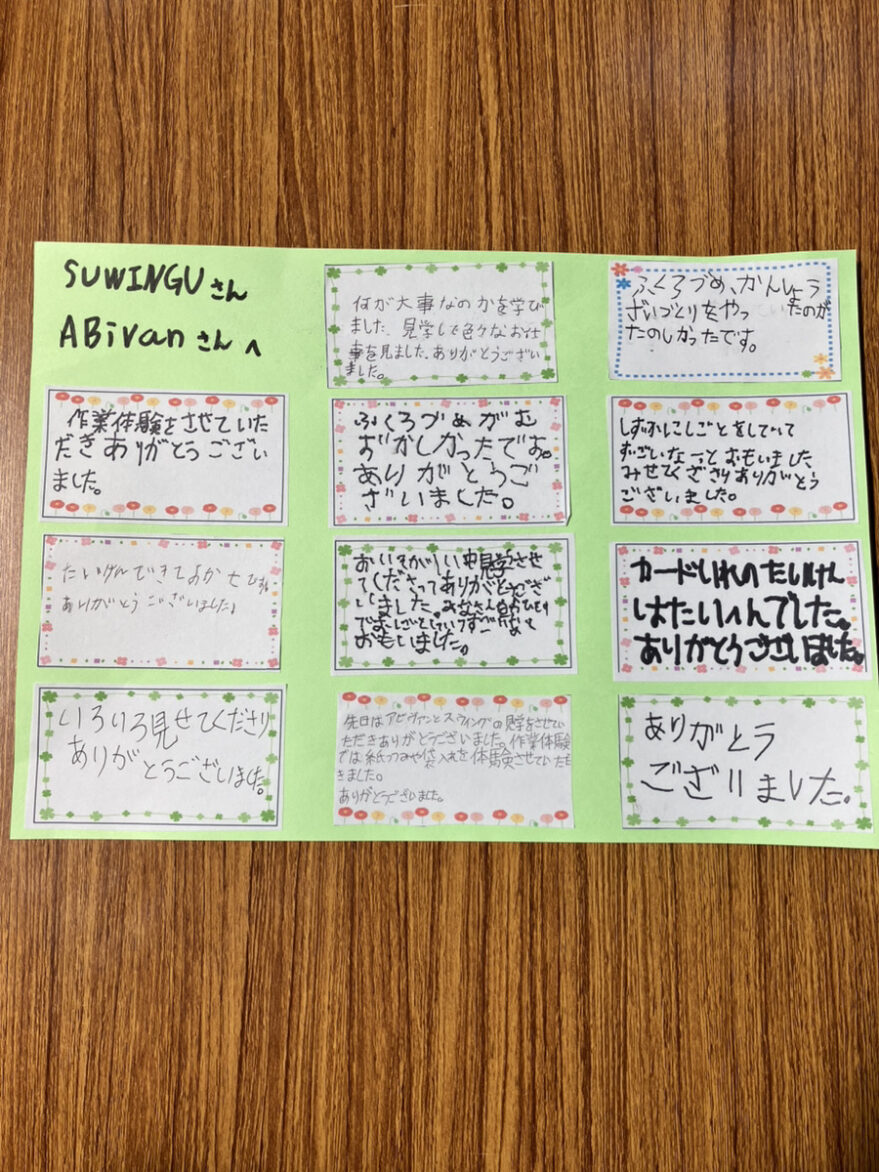 SUWINGUさん
ABivanさんへ
何が大事なのかを学び
ました。見学して色々なお仕
事を見ました。ありがとうござい
ました。
ふくろづめ、かんしょう
ざいづくりをやっていたのが
たのしかったです。
作業体験をさせていた
だきありがとうござい
ました。
ふくろづめがむ
ずかしかったです。
ありがとうご
ざいました。
しずかにしごとをしていて
すごいなーっとおもいました
みせてくださりありがとう
ございました。
たいけんできてよかったです。
ありがとうございました。
おいそがしい中見学させ
てくださってありがとうござ
いました。みなさん
でおしごとしていてすごいなと
おもいました。
カードいれのたいけん
はたいへんでした。
ありがとうございました。
いろいろ見せてくださり
ありが
とうございました。
先日はアビヴァンとスウィングの見学をさせてい
ただきありがとうございました。作業体験
では紙つつみや袋入れを体験させていただ
きました。
ありがとうございました。
ありがとう
ございました。